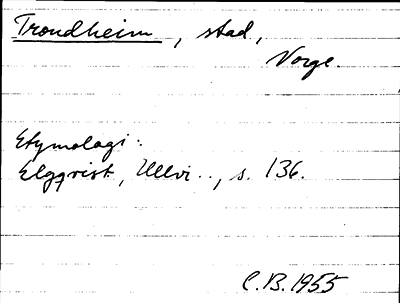 Trondheim, stad,
Norge.
Etymologi:
Elgqvist, Ullvi.., s. 136.
C.B. 1955